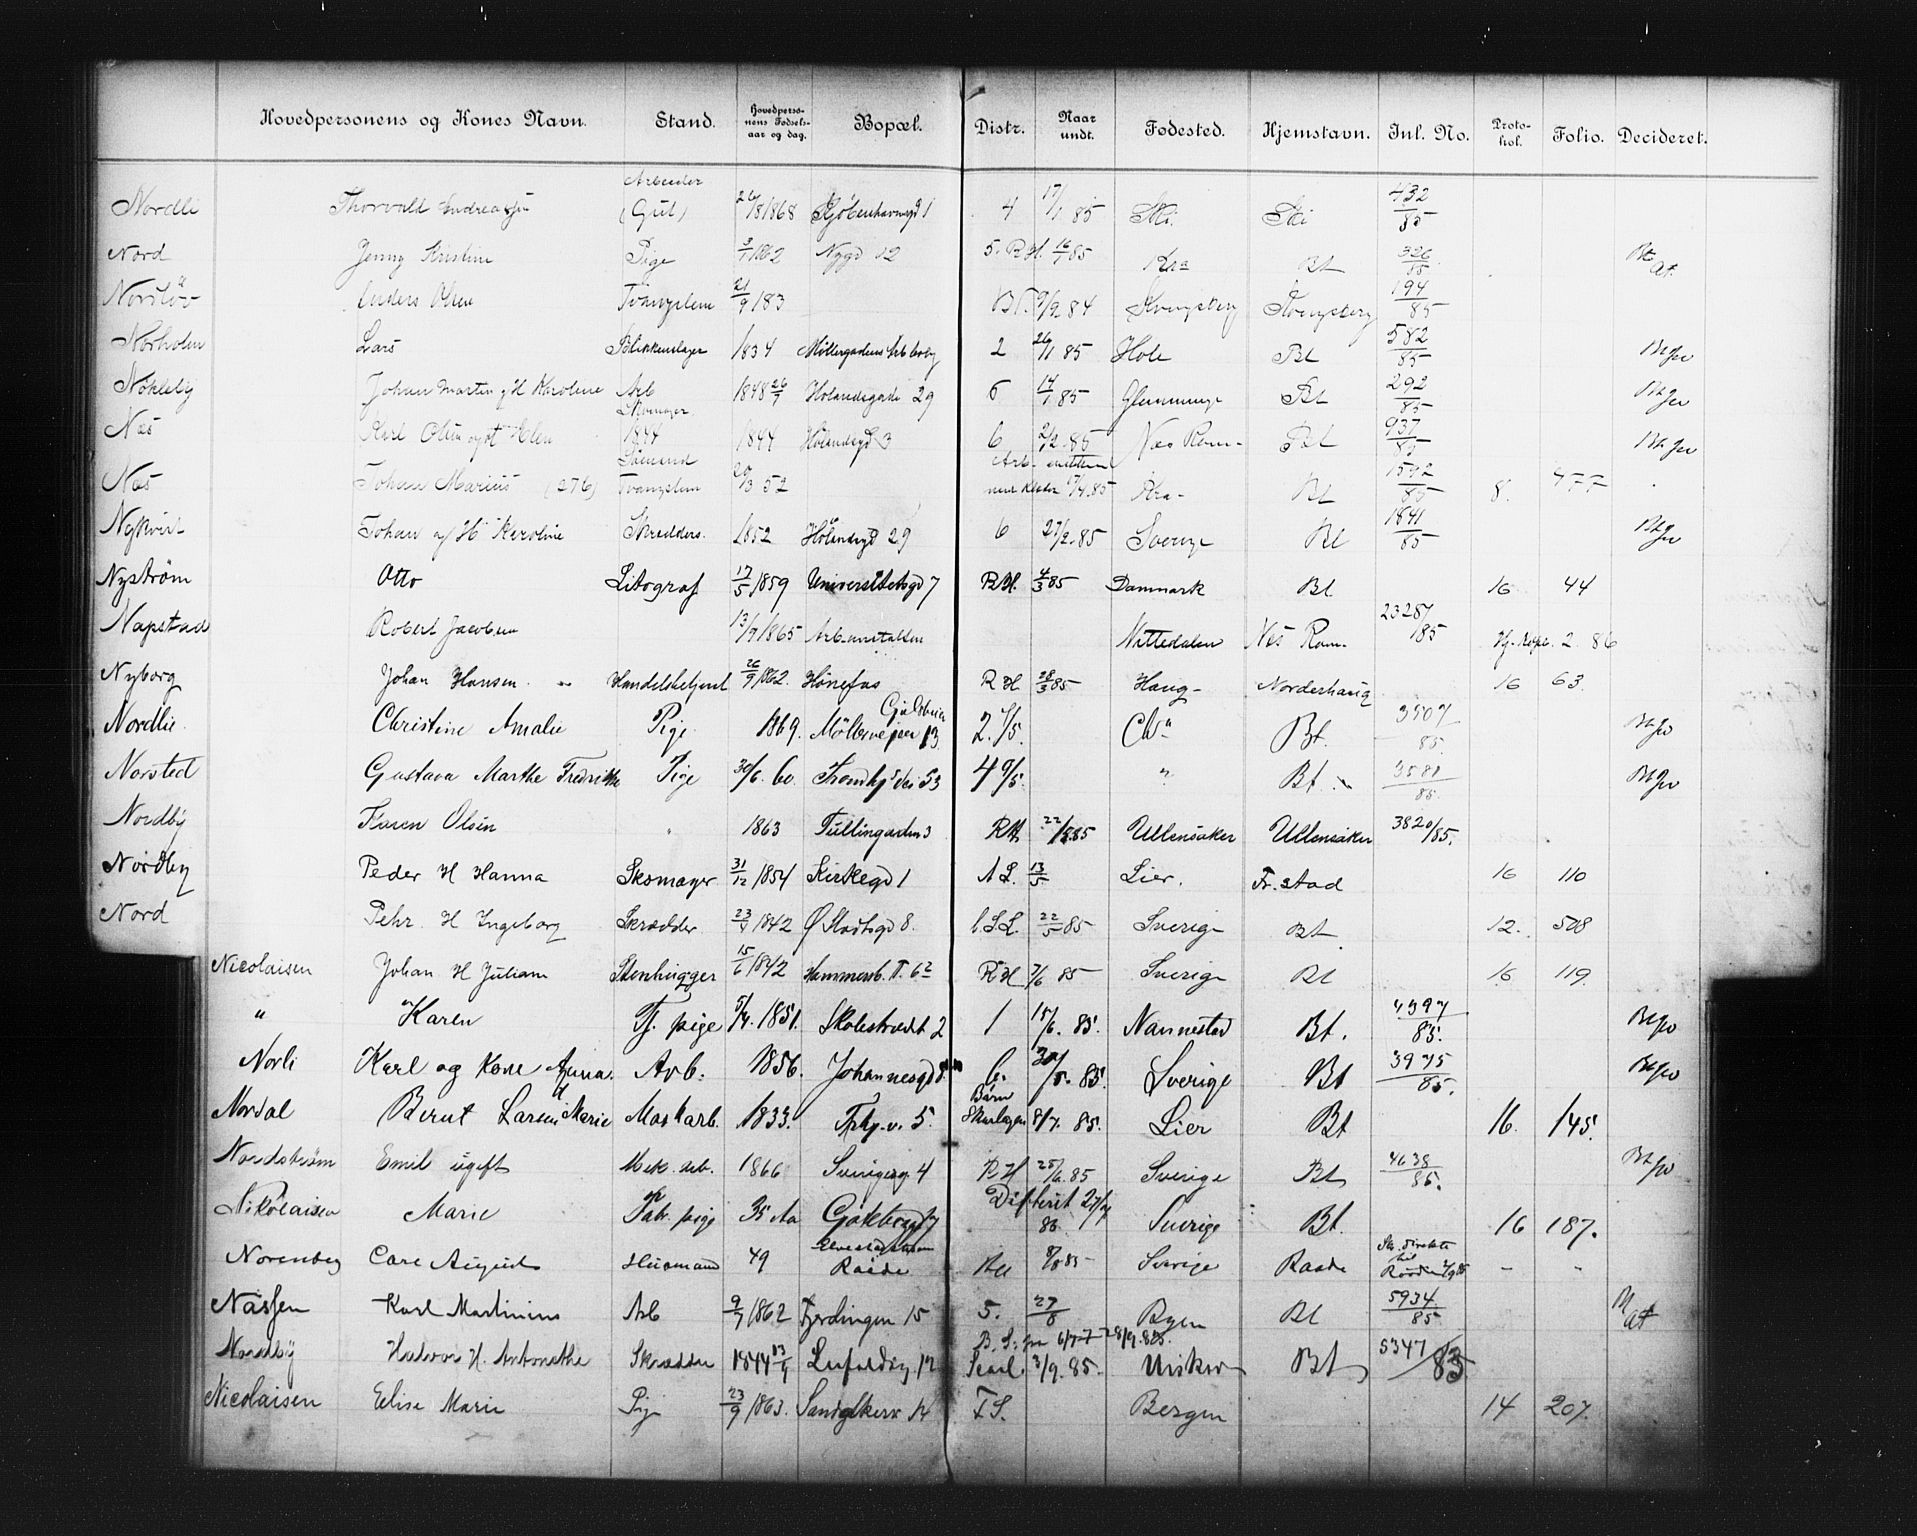 Hovedpersonens og Kones Navn. Stand. Hovedpersonens Fødselsaar og dag. Bopæl. Distr. Naar undt. Fødested. Hjemstavn. Inl. No. Protokol. Folio. Decideret.
Nordli Thorvald Andreassen Arbeider (Gut) 26/8 1868 Kjøbenhavnsgd 1 4 17/1 85 Ski Ski 432/85
Nord Jenny Kristine Pige 3/1 1862 Nygd 12 5. RH. 16/1 85 Kra Bt 326/85
Anders Olsen Tvangslem 21/9 183 Bt. 9/2 84 Kongsberg Kongsberg 194/85
Norholm Lars Blikkenslager 1834 Møllergadens Arb 2 26/1 85 Hole Bt 582/85
Nøkleby Johan Martin g H Karoline Arb 1848 26/7 Holandsgade 29 6 14/1 85 Glemminge Bt 292/85
Næs Karl Olsen Skomager 1844 1844 Hølandsgd 3 6 2/2 85 Næs Rom- Bt 937/85
Næs Johan Marius (276) Sømand Tvangslem 20/3 52 Kra- Bt 1592/85 8. 477
Nykvist Johan g H Karoline Skrædders. 1852 Hølandsgd 29 6 27/2 85 Sverige Bt 1841/85
Nystrøm Otto Litograf 17/5 1859 Universitetsgd 7 RH. 4/3 85 Danmark Bt 16 44
Napstad Robert Jacobsen 13/9 1865 Arb.anstalten Nittedalen Næs Rom- 23287/85 2 86
Nyborg Johan Hansen Handelsbetjent 26/9 1862. Hønefos RH 28/3 85 Haug- Norderhaug 16 63
Nordlie Christine Amalie Pige 1869. Møllerveien 13 2. 1/5. Chra Bt. 3507/85
Norsted Gustava Marthe Fredrikke Pige 30/6. 60. Trondhj's vei 53 4 9/5. " Bt 3581/85
Nordby Karen Olsen " 1863 Tullingaden 3 RH 22/5 85 Ullensaker Ullensaker 3820/85.
Nordby Peder H Hanna Skomager 31/12 1854 Kirkegd 1 A L. 13/5 Lier. Fr.stad 16 110
Nord Pehr H Ingeborg Skrædder 23/9 1842 Ø Slotsgd 8. 22/5 85 Sverige Bt 12. 508
Nicolaisen Johan H Juliane Stenhugger 15/6 1842 Hammersb. T. 62 RH 7/6 85 Sverige Bt 16 119
" Karen Tj. pige 5/4. 1851. Skolestrædet 2 1 15/6. 85. Nannestad Bt. 4397/85.
Norli Karl og Kone Anna. Arb. 1856. Johannesgd 8 6. 30/5. 85. Sverige Bt 3975/85.
Nordal Berut Larsen H Marie Maskarb. 1833. Trhj.v. 5. Børn Skarlagen 8/7. 85. Lier Bt 16. 145.
Nordstrøm Emil ugift Mek. arb. 1866 Sverigesg. 4 RH 25/6.85 Sverige Bt 4638/85.
Nikolaisen Marie Fab. pige 35 Aa Gøteborgd 7 Difterit 27/7 85 Sverige Bt. 16 187.
Norenberg Carl August Husmand 49 Raade 8/8 85 Sverige Raade Sk. direkte til Raade - -
Nassen Karl Martinius Arb 9/7 1862 Fjerdingen 15 5. 27/8 Byen Bt 5934/85
Nordby Halvor H. Antonethe Skrædder 1844 13/9 12 Scarl. 3/9. 85. Bt 5347/85
Nicolaisen Elise Marie Pige 23/9 1863. Sandakerv 14 F S. Bergen 14 207.